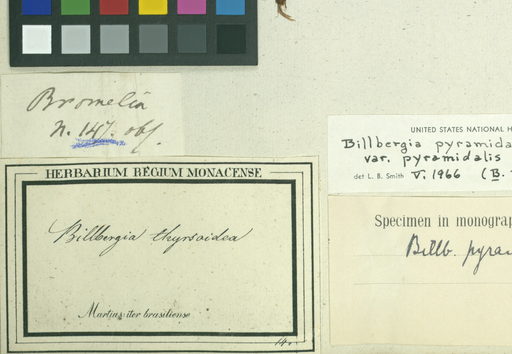 Bromelia
n. 147. obs.
HERBARIUM REGIUM MONACENSE.
Billbergia thyrsoidea
Martius: iter brasiliense
14.
UNITED STATES NATIONAL H
Billbergia pyramida
var. pyramidalis
det L. B. Smith V. 1966 (B.
Specimen in monograp
Billb. pyra